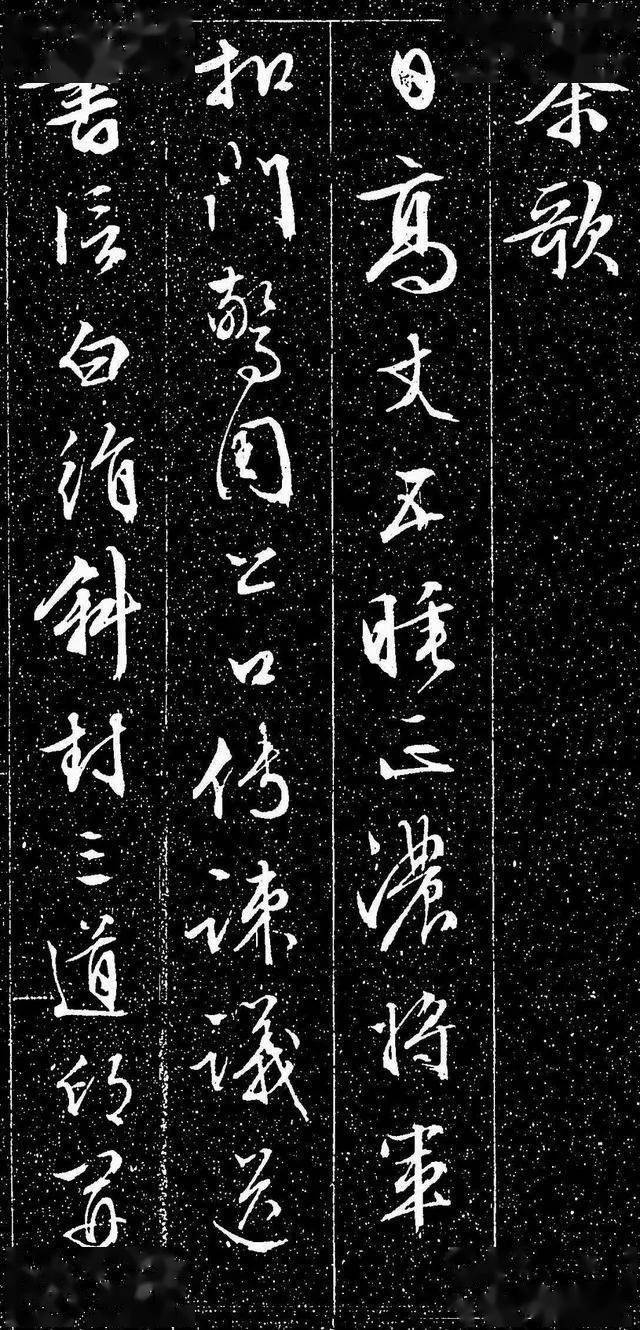 茶歌
日高丈五睡正濃將軍
扣門驚周公口傳諫議送
書信白絹斜封三道印開